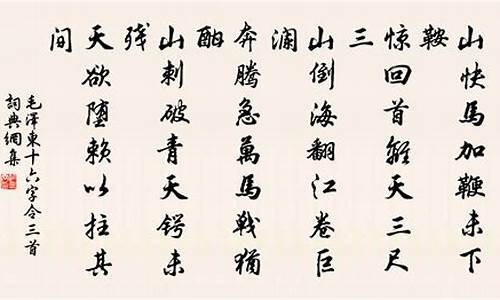 山快馬加鞭未下
鞍
惊回首離天三尺
三
山倒海翻江卷巨
瀾
奔騰急萬馬戰猶
酣
山刺破青天锷未
残
天欲堕賴以拄其
間
毛澤東十六字令三首
詞典網集